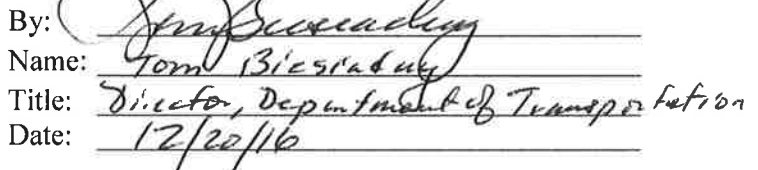 By: Tom Biesiaduy
Name: Tom Biesiaduy
Title: Director, Department of Transportation
Date: 12/20/16